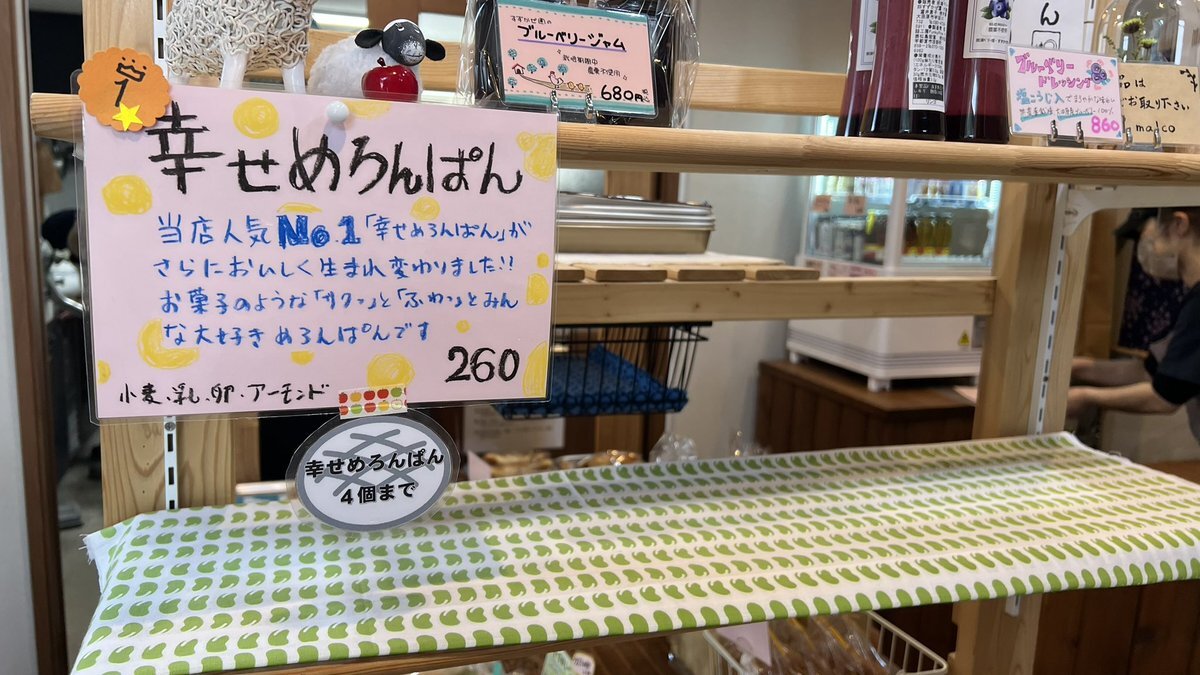 幸せめろんぱん
当店人気No.1「幸せめろんぱん」が
さらにおいしく生まれ変わりました!!
お菓子のような「サクッ」と「ふわっ」とみん
な大好きめろんぱんです
260
小麦・乳・卵・アーモンド
幸せめろんぱん
4個まで
ブルーベリージャム
栽培期間中
農薬不使用
680円
ん
ブルーベリー
ドレッシング
塩こうじ入で
860
お取り下さい